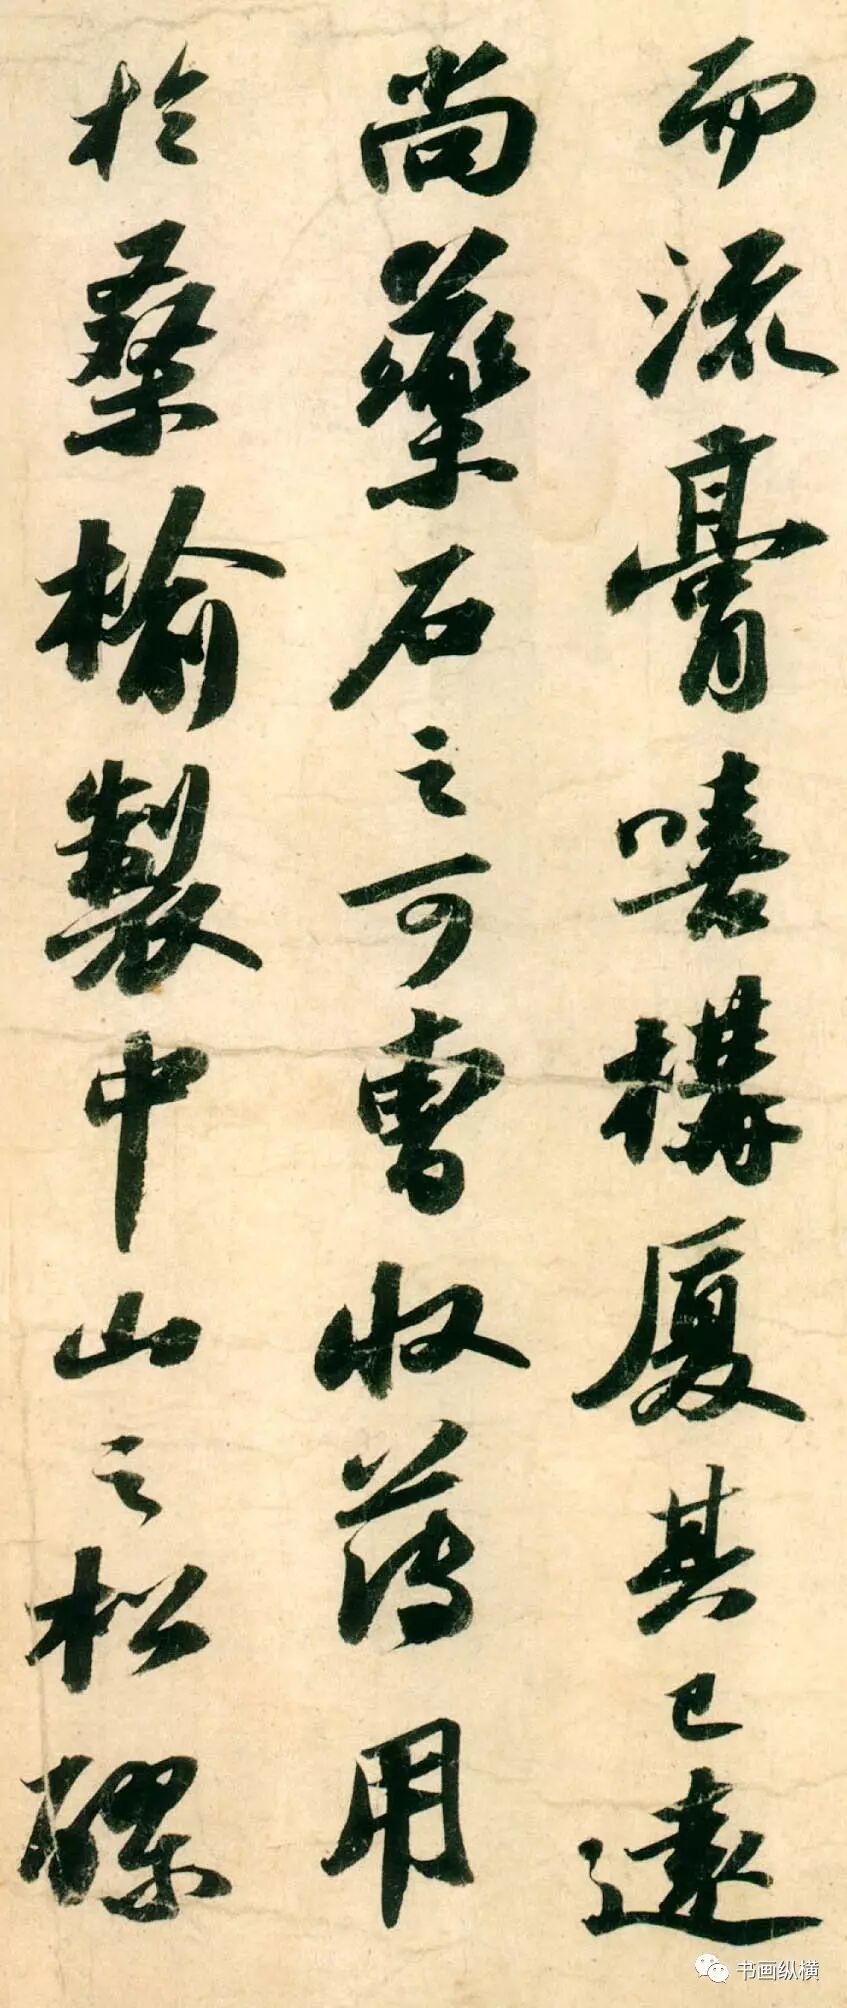 而流膏嘻構厦其已遠
尚藥石之可曹收薄用
於桑榆製中山之松醪
书画纵横